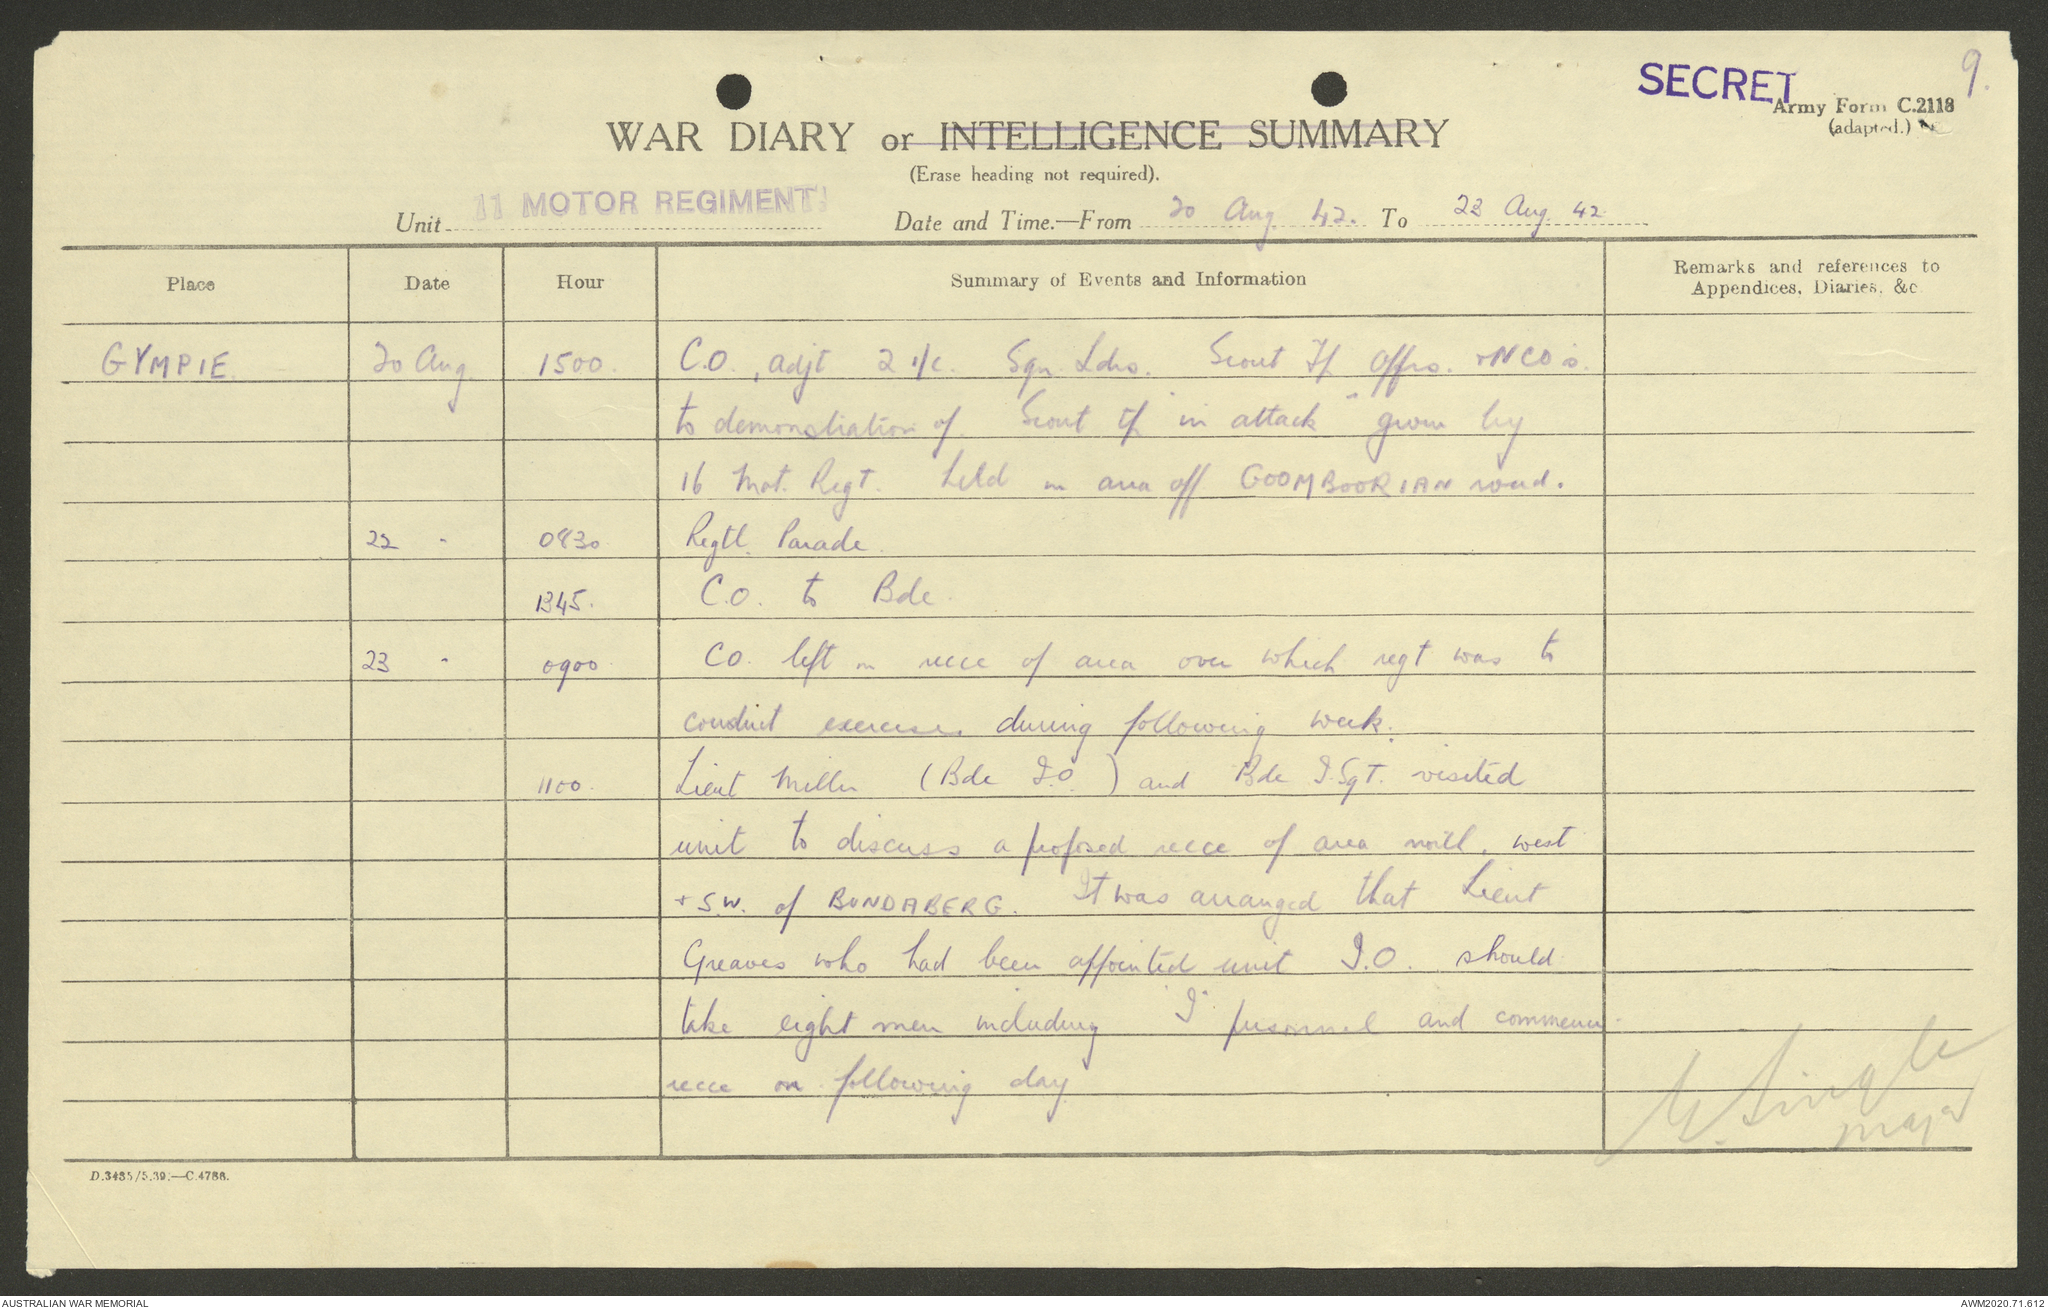 SECRET
9.
Army Form C.2118
(adapted.)
WAR DIARY or INTELLIGENCE SUMMARY
(Erase heading not required).
Unit 11 MOTOR REGIMENT Date and Time.—From 20 Aug. 42. To 23 Aug. 42
Place Date Hour Summary of Events and Information Remarks and references to
Appendices, Diaries, &c
GYMPIE 20 Aug. 1500. C.O., adjt 2 i/c. Sqn Ldrs. Scout Tp Offrs. + NCO's.
to demonstration of "Scout tp in attack" given by
16 Mot. Regt. held in area off GOOMBOORIAN road.
22 " 0830 Regtl. Parade.
1345. C.O. to Bde.
23 " 0900 CO. left on recce of area over which regt was to
conduct exercises during following week.
1100. Lieut Miller (Bde I.O.) and Bde I. Sgt. visited
unit to discuss a proposed recce of area north, west
+ S.W. of BUNDABERG. It was arranged that Lieut
Greaves who had been appointed unit I.O. should
take eight men including "I" personnel and commence
recce on following day
Single
Major
D.3485/5.39.—C.4788.
AUSTRALIAN WAR MEMORIAL
AWM2020.71.612